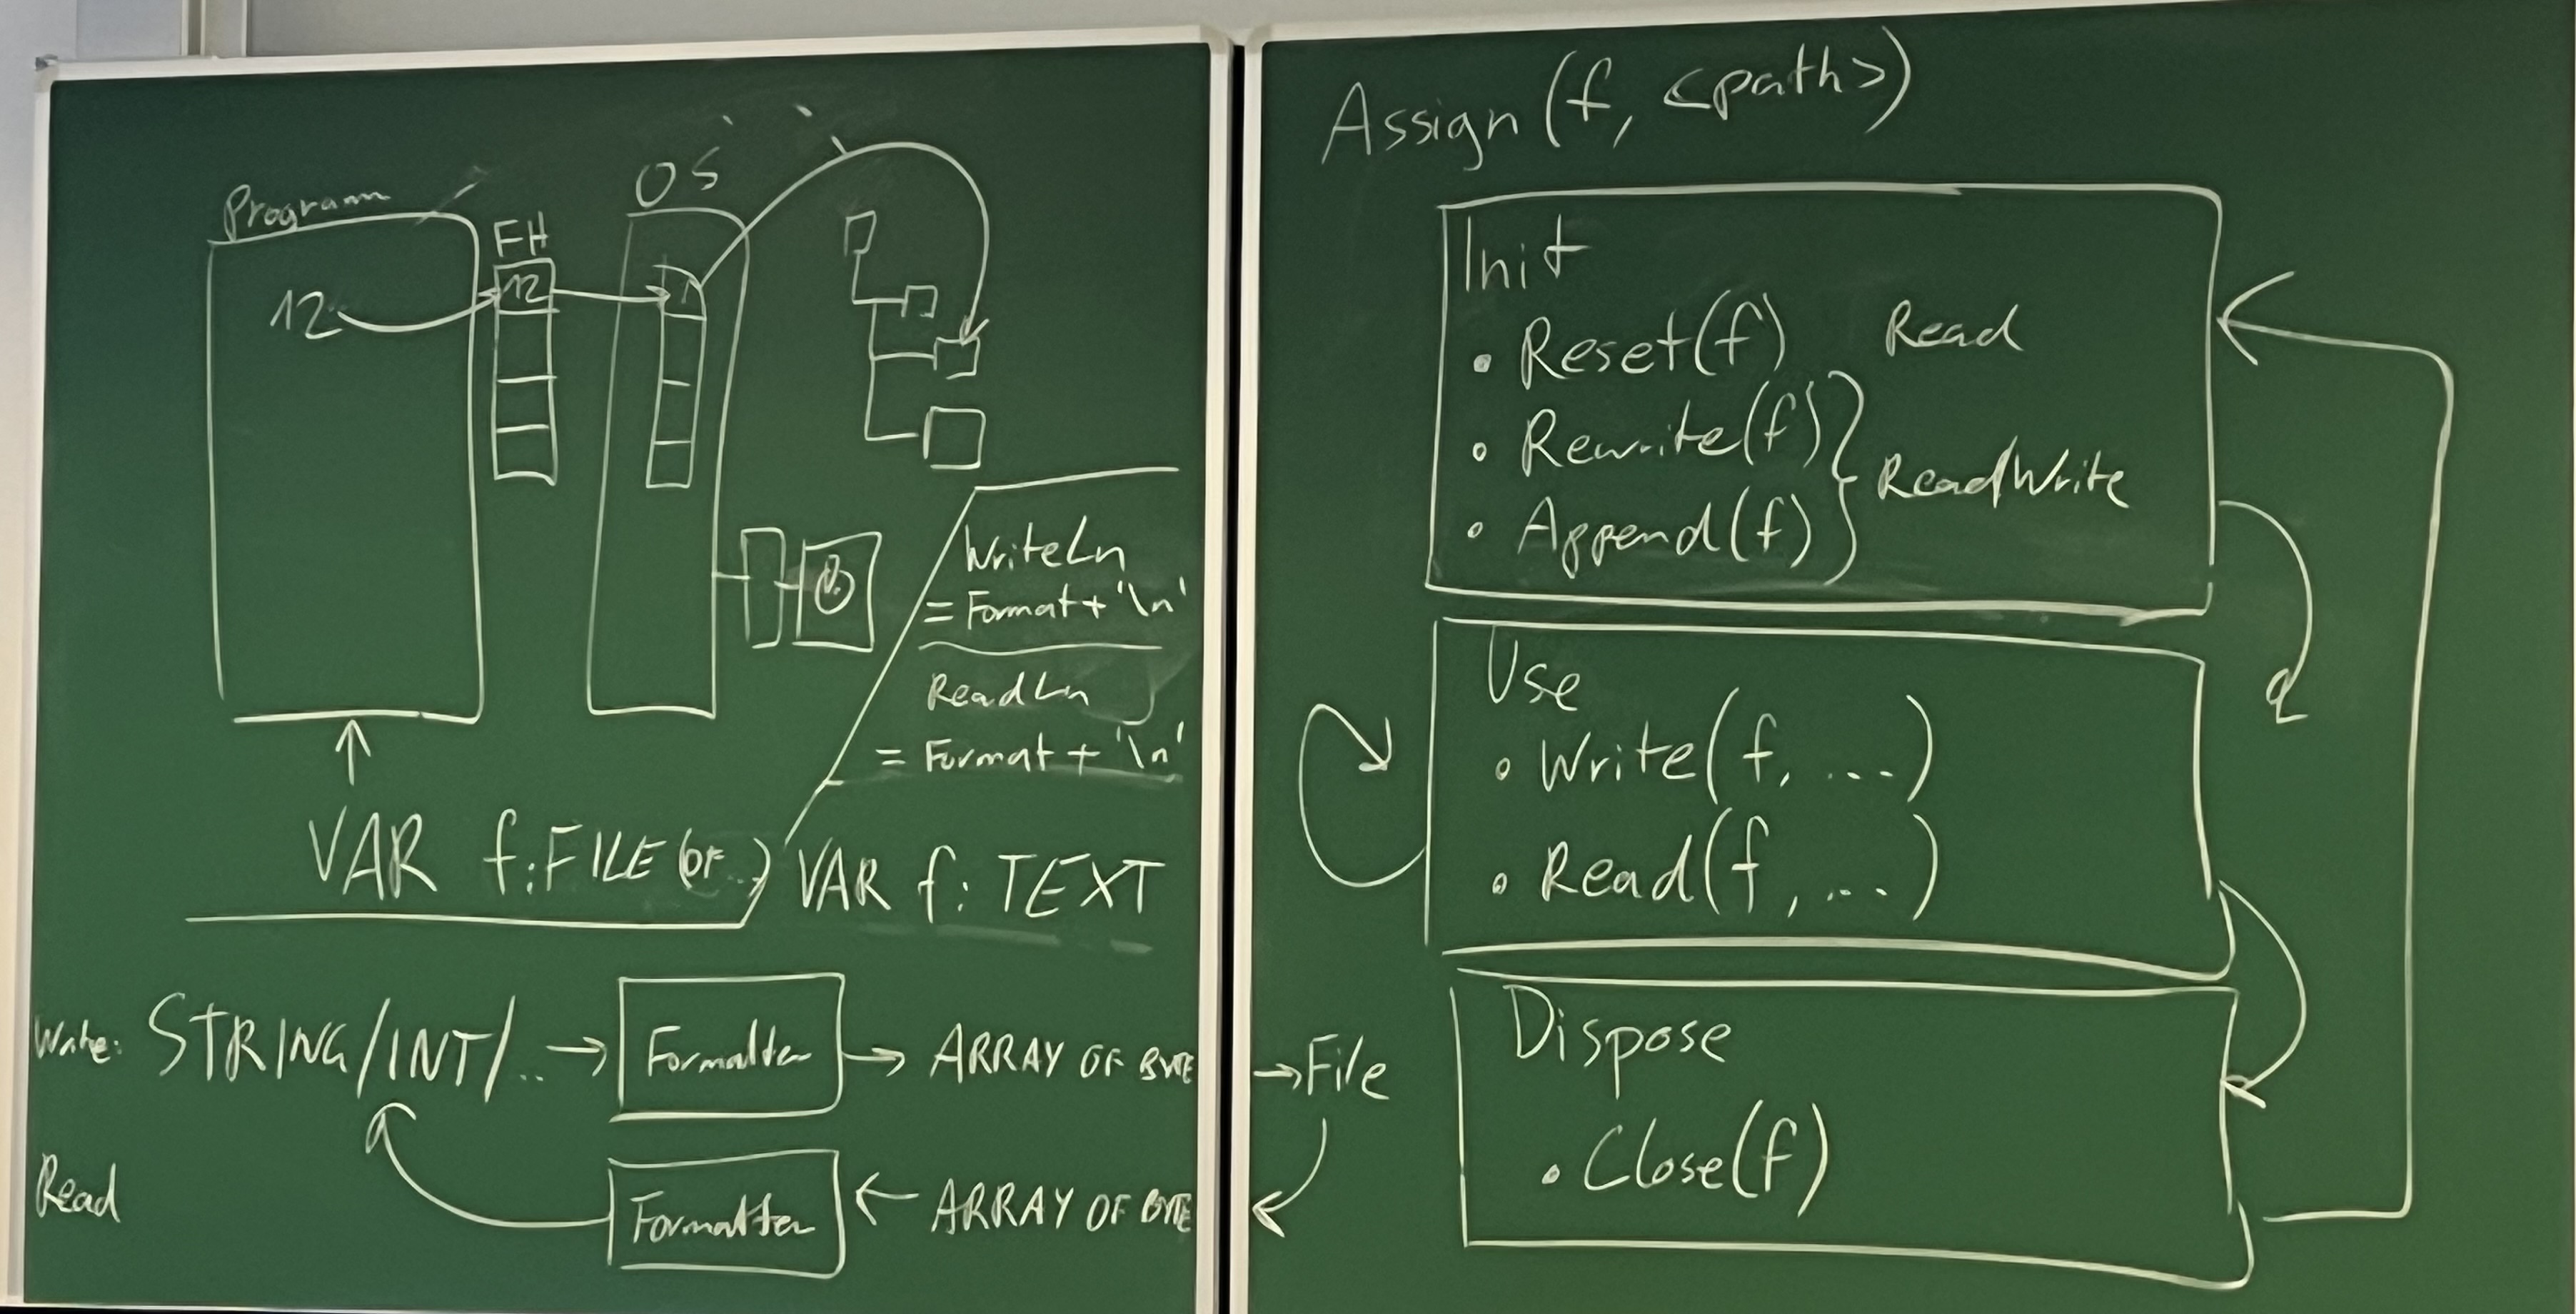 Programm
OS
FH
12
12
WriteLn
= Format + '\n'
ReadLn
= Format + '\n'
VAR f: FILE (OF ..)
VAR f: TEXT
Write: STRING/INT/.. → Formatter → ARRAY OF BYTE → File
Read
Formatter ← ARRAY OF BYTE
Assign(f, <path>)
Init
• Reset(f) Read
• Rewrite(f)
• Append(f)
Read/Write
Use
• Write(f, ...)
• Read(f, ...)
Dispose
• Close(f)